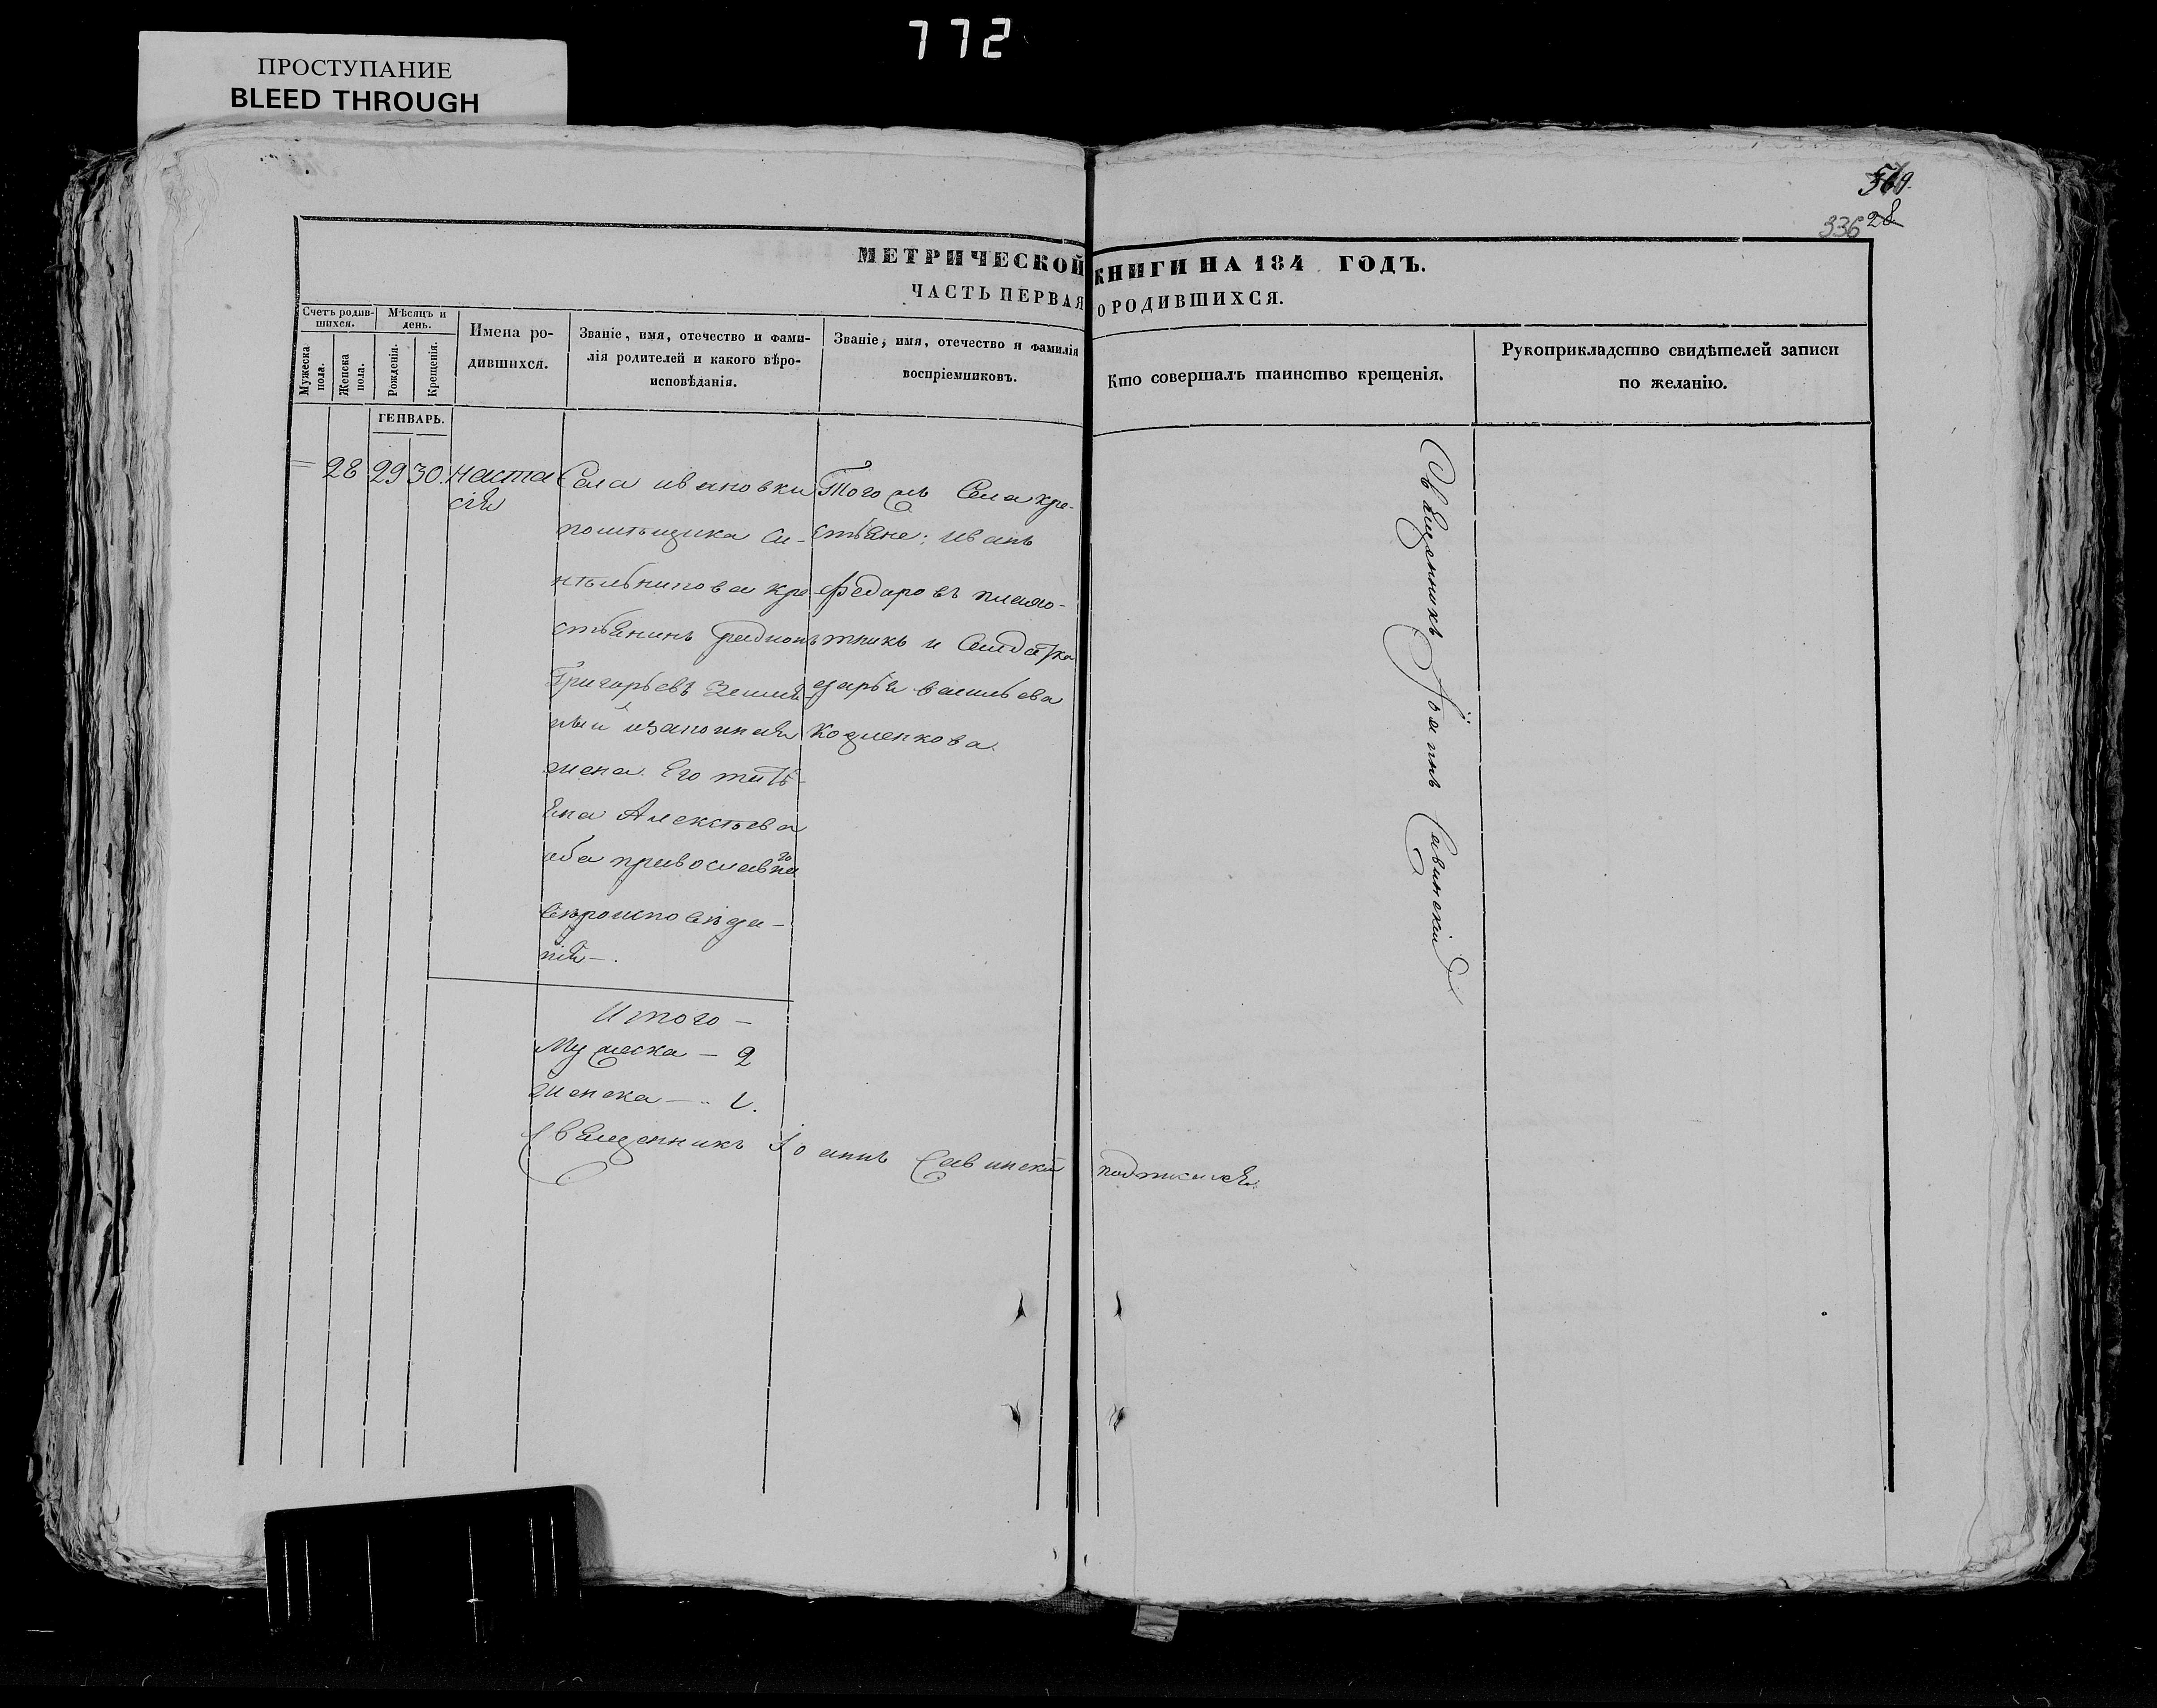 772
ПРОСТУПАНИЕ
BLEED THROUGH
336 28
МЕТРИЧЕСКОЙ КНИГИ НА 184 ГОДЪ.
ЧАСТЬ ПЕРВАЯ О РОДИВШИХСЯ.
Счетъ родив-
шихся.
Мужеска
пола.
Женска
пола.
Мѣсяцъ и
день.
Рожденія.
Крещенія.
Имена ро-
дившихся.
Званіе, имя, отечество и фами-
лія родителей и какого вѣро-
исповѣданія.
Званіе, имя, отечество и фамилія
воспріемниковъ.
Кто совершалъ таинство крещенія.
Рукоприкладство свидѣтелей записи
по желанію.
ГЕНВАРЬ.
28 29 30. Наста
сія
Села ивановки
помѣщика Си-
кре
стьянинъ
Григорьевъ
изаконная
жена Его тать
яна Алексѣева
оба православна
го
вѣроисповѣда-
нія.
Того жъ Села кре-
стьяне: иванъ
Федаровъ
и Салдатка
дарья васильева
Козленкова.
Священникъ Іоаннъ Савинскій
Итого
Мужеска — 2
женска — 1.
Священникъ Іоаннъ Савинскій